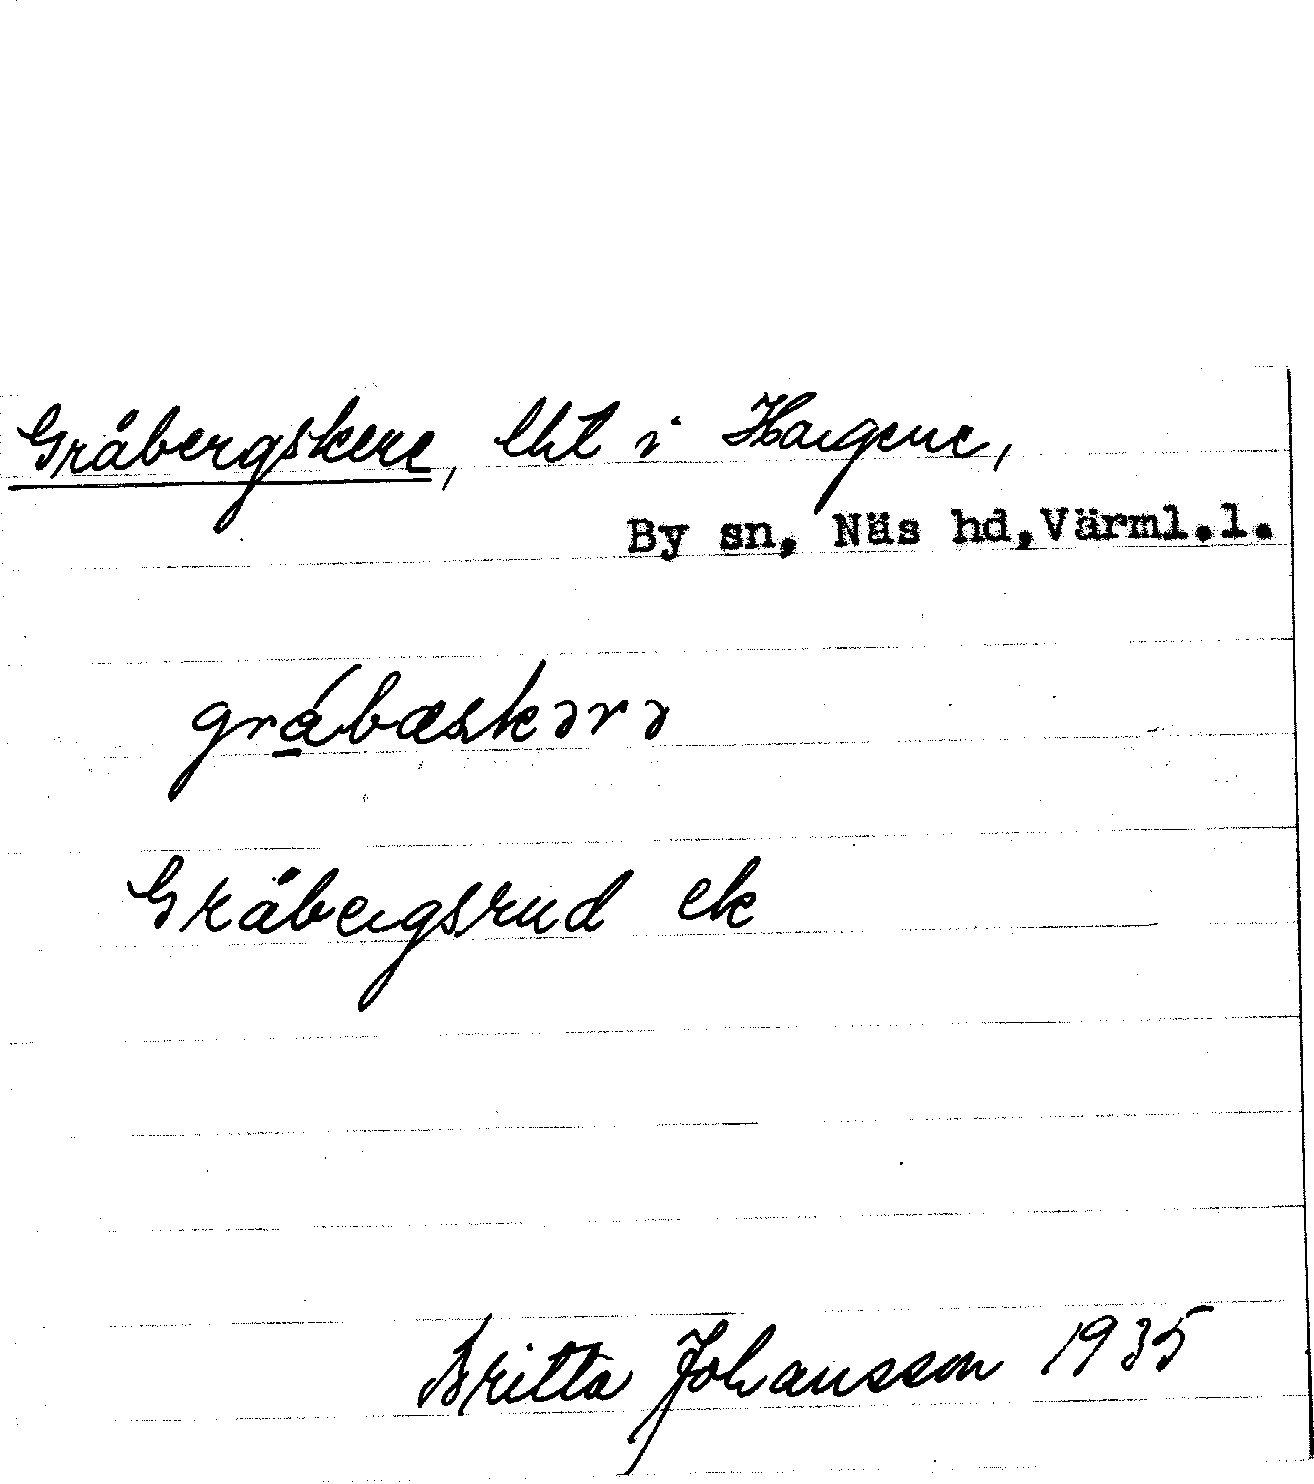 Gråbergskere, lht i Hagene,
By sn, Näs hd, Värml.l.
gråbæskərə
Gråbergsrud ek
Britta Johansson 1935